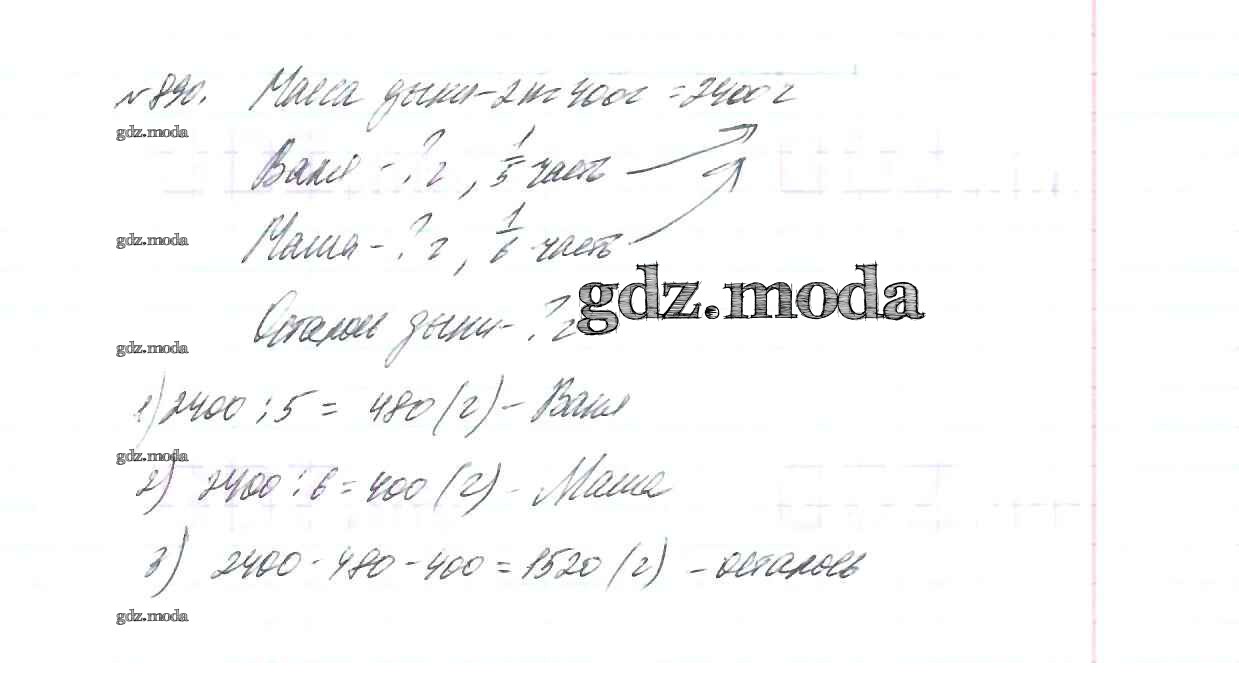 №890. Масса дыни - 2 кг 400 г = 2400 г
gdz.moda
Ваня - ? г, 1/5 часть
Маша - ? г, 1/6 часть
gdz.moda
gdz.moda
Осталось дыни - ? г
gdz.moda
1) 2400 : 5 = 480 (г) - Ваня
gdz.moda
2) 2400 : 6 = 400 (г) - Маша
3) 2400 - 480 - 400 = 1520 (г) - осталось
gdz.moda